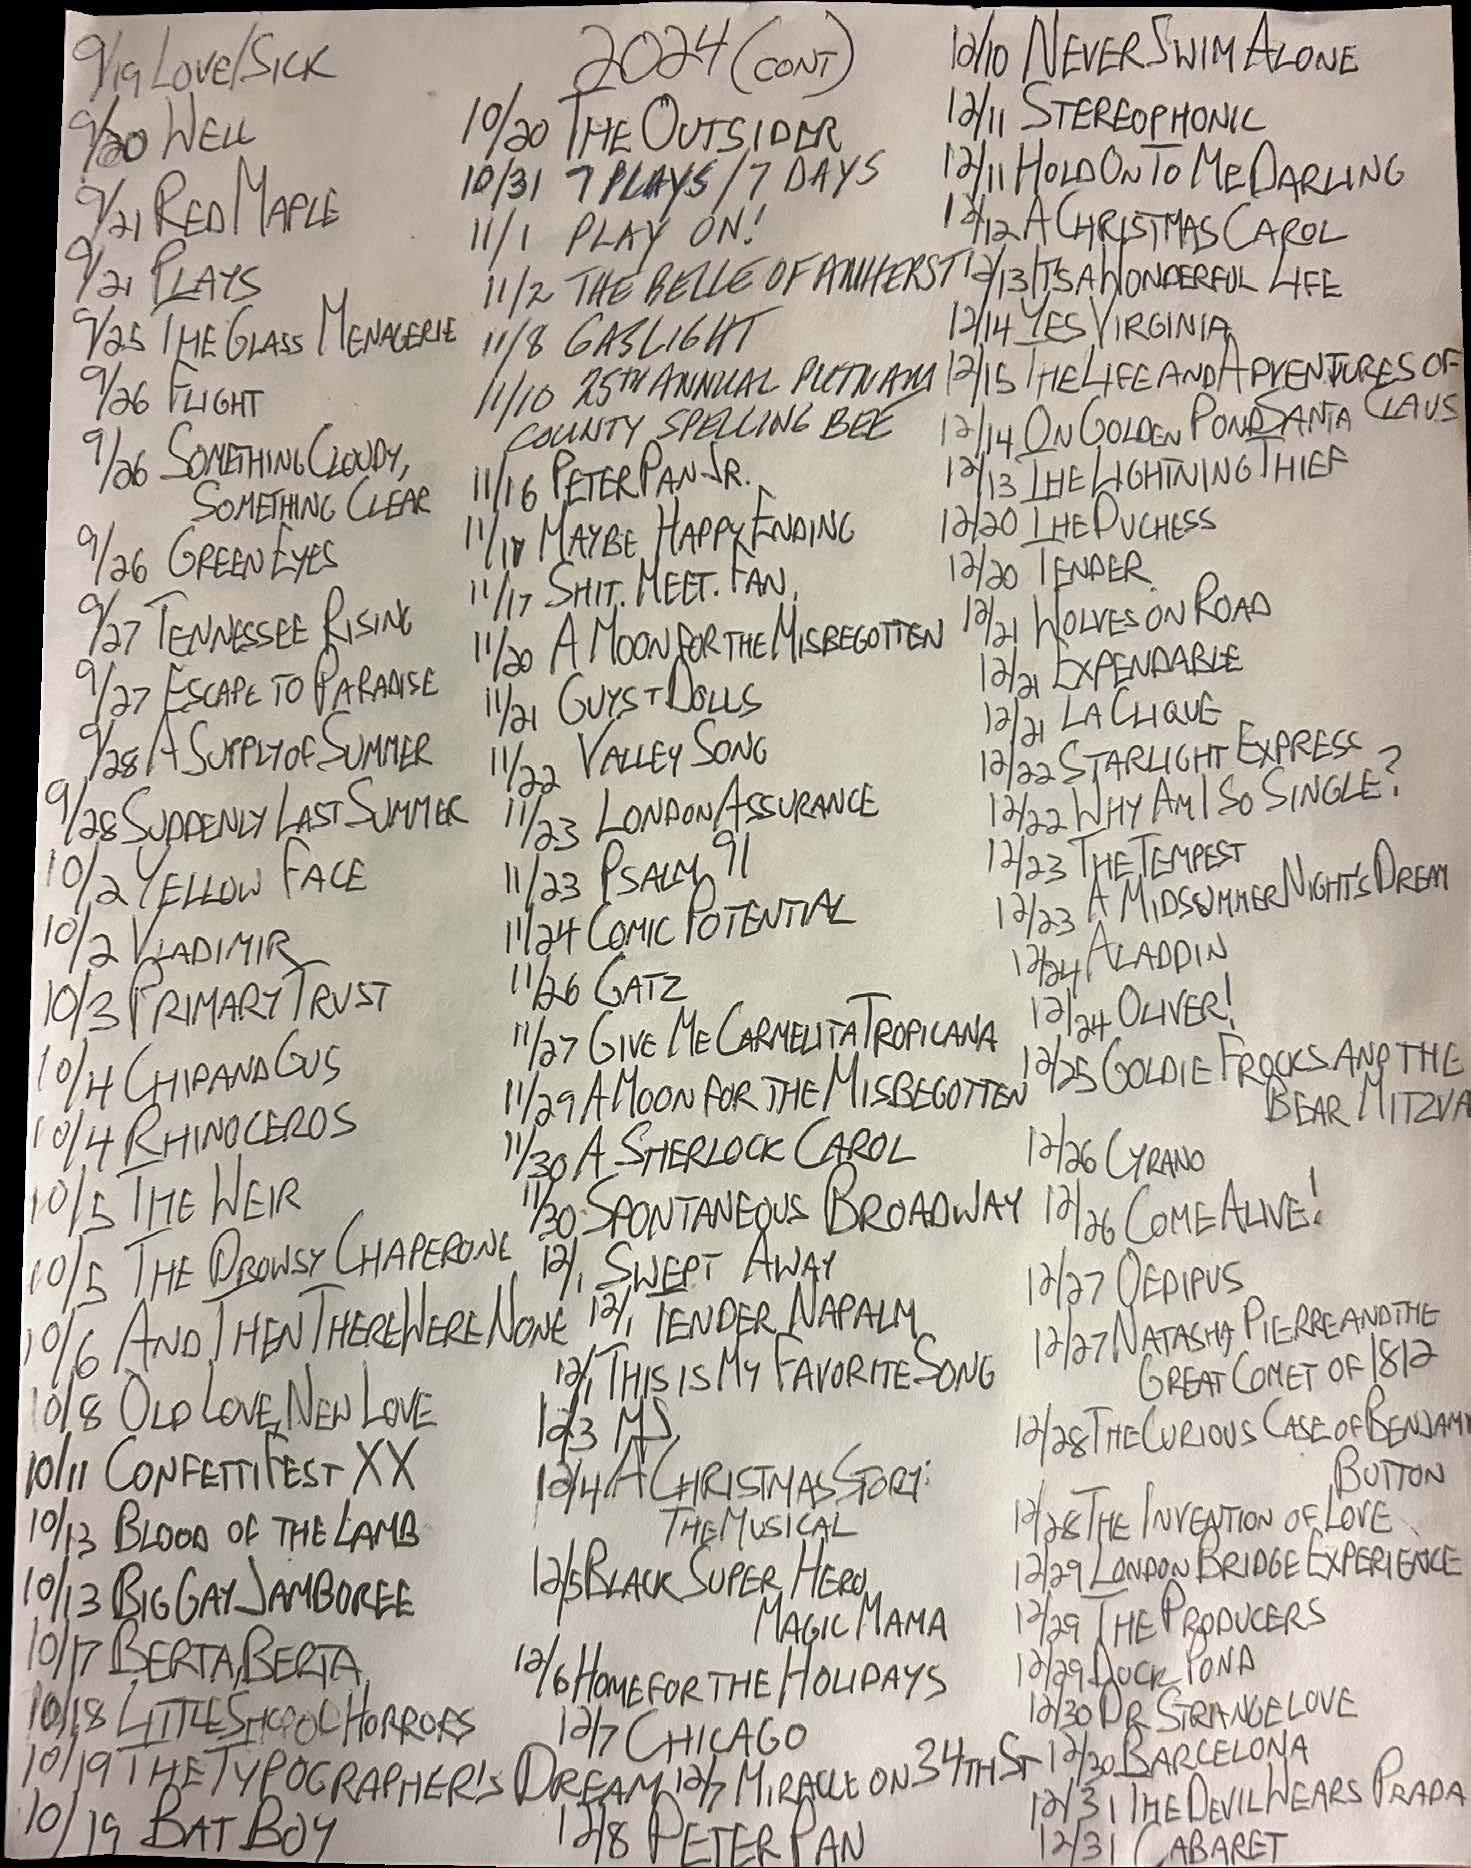 9/19 LOVE/SICK
9/20 WELL
9/21 RED MAPLE
9/21 PLAYS
9/25 THE GLASS MENAGERIE
9/26 FLIGHT
9/26 SOMETHING CLOUDY,
SOMETHING CLEAR
9/26 GREEN EYES
9/27 TENNESSEE RISING
9/27 ESCAPE TO PARADISE
9/28 A SUPPLY OF SUMMER
9/28 SUDDENLY LAST SUMMER
10/2 YELLOW FACE
10/2 VLADIMIR
10/3 PRIMARY TRUST
10/4 CHIP AND GUS
10/4 RHINOCEROS
10/5 THE WEIR
10/5 THE DROWSY CHAPERONE
10/6 AND THEN THERE WERE NONE
10/8 OLD LOVE, NEW LOVE
10/11 CONFETTI FEST XX
10/13 BLOOD OF THE LAMB
10/13 BIG GAY JAMBOREE
10/17 BERTA, BERTA
10/18 LITTLE SHOP OF HORRORS
10/19 THE TYPOGRAPHER'S DREAM
10/19 BAT BOY
2024 (CONT)
10/20 THE OUTSIDER
10/31 7 PLAYS/7 DAYS
11/1 PLAY ON!
11/2 THE BELLE OF AMHERST
11/8 GASLIGHT
11/10 25TH ANNUAL PUTNAM
COUNTY SPELLING BEE
11/16 PETER PAN JR.
11/17 MAYBE HAPPY ENDING
11/17 SHIT. MEET. FAN.
11/20 A MOON FOR THE MISBEGOTTEN
11/21 GUYS + DOLLS
11/22 VALLEY SONG
11/23 LONDON ASSURANCE
11/23 PSALM 91
11/24 COMIC POTENTIAL
11/26 GATZ
11/27 GIVE ME CARMELITA TROPICANA
11/29 A MOON FOR THE MISBEGOTTEN
11/30 A SHERLOCK CAROL
11/30 SPONTANEOUS BROADWAY
12/1 SWEPT AWAY
12/1 TENDER NAPALM
12/1 THIS IS MY FAVORITE SONG
12/3 MJ
12/4 A CHRISTMAS STORY:
THE MUSICAL
12/5 BLACK SUPER HERO
MAGIC MAMA
12/6 HOME FOR THE HOLIDAYS
12/7 CHICAGO
12/7 MIRACLE ON 34TH ST
12/8 PETER PAN
12/10 NEVER SWIM ALONE
12/11 STEREOPHONIC
12/11 HOLD ON TO ME DARLING
12/12 A CHRISTMAS CAROL
12/13 ITS A WONDERFUL LIFE
12/14 YES VIRGINIA
12/15 THE LIFE AND ADVENTURES OF
SANTA CLAUS
12/14 ON GOLDEN POND
12/13 THE LIGHTNING THIEF
12/20 THE DUCHESS
12/20 TENDER
12/21 WOLVES ON ROAD
12/21 EXPENDABLE
12/21 LA CLIQUE
12/22 STARLIGHT EXPRESS
12/22 WHY AM I SO SINGLE?
12/23 THE TEMPEST
12/23 A MIDSUMMER NIGHT'S DREAM
12/24 ALADDIN
12/24 OLIVER!
12/25 GOLDIE FROCKS AND THE
BEAR MITZVA
12/26 CYRANO
12/26 COME ALIVE!
12/27 OEDIPUS
12/27 NATASHA PIERRE AND THE
GREAT COMET OF 1812
12/28 THE CURIOUS CASE OF BENJAMI
BUTTON
12/28 THE INVENTION OF LOVE
12/29 LONDON BRIDGE EXPERIENCE
12/29 THE PRODUCERS
12/29 DUCK POND
12/30 DR STRANGELOVE
12/30 BARCELONA
12/31 THE DEVIL WEARS PRADA
12/31 CABARET